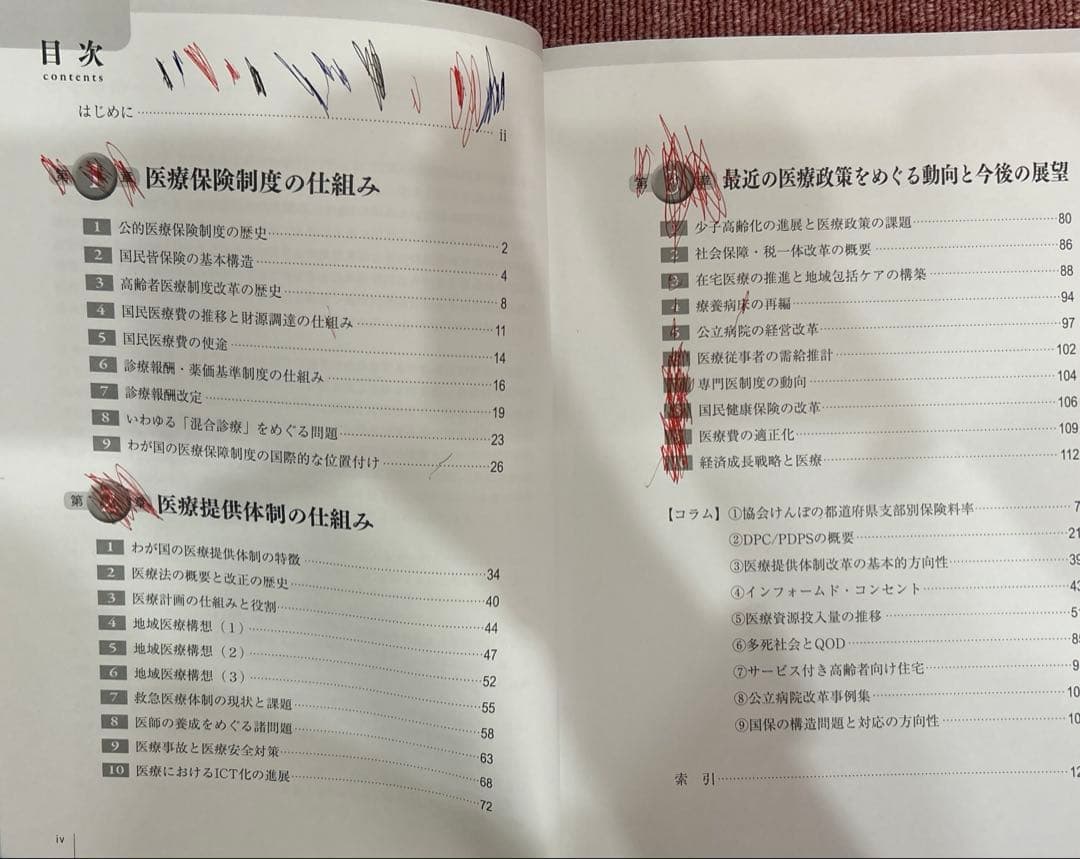 目次
contents
はじめに ii
第1章 医療保険制度の仕組み
1 公的医療保険制度の歴史 2
2 国民皆保険の基本構造 4
3 高齢者医療制度改革の歴史 8
4 国民医療費の推移と財源調達の仕組み 11
5 国民医療費の使途 14
6 診療報酬・薬価基準制度の仕組み 16
7 診療報酬改定 19
8 いわゆる「混合診療」をめぐる問題 23
9 わが国の医療保障制度の国際的な位置付け 26
第2章 医療提供体制の仕組み
1 わが国の医療提供体制の特徴 34
2 医療法の概要と改正の歴史 40
3 医療計画の仕組みと役割 44
4 地域医療構想（1） 47
5 地域医療構想（2） 52
6 地域医療構想（3） 55
7 救急医療体制の現状と課題 58
8 医師の養成をめぐる諸問題 63
9 医療事故と医療安全対策 68
10 医療におけるICT化の進展 72
iv
第3章 最近の医療政策をめぐる動向と今後の展望
1 少子高齢化の進展と医療政策の課題 80
2 社会保障・税一体改革の概要 86
3 在宅医療の推進と地域包括ケアの構築 88
4 療養病床の再編 94
5 公立病院の経営改革 97
医療従事者の需給推計 102
専門医制度の動向 104
国民健康保険の改革 106
医療費の適正化 109
経済成長戦略と医療 112
【コラム】①協会けんぽの都道府県支部別保険料率 7
②DPC/PDPSの概要 21
③医療提供体制改革の基本的方向性 39
④インフォームド・コンセント 43
⑤医療資源投入量の推移 5
⑥多死社会とQOD 8
⑦サービス付き高齢者向け住宅 9
⑧公立病院改革事例集 10
⑨国保の構造問題と対応の方向性 10
索引 12